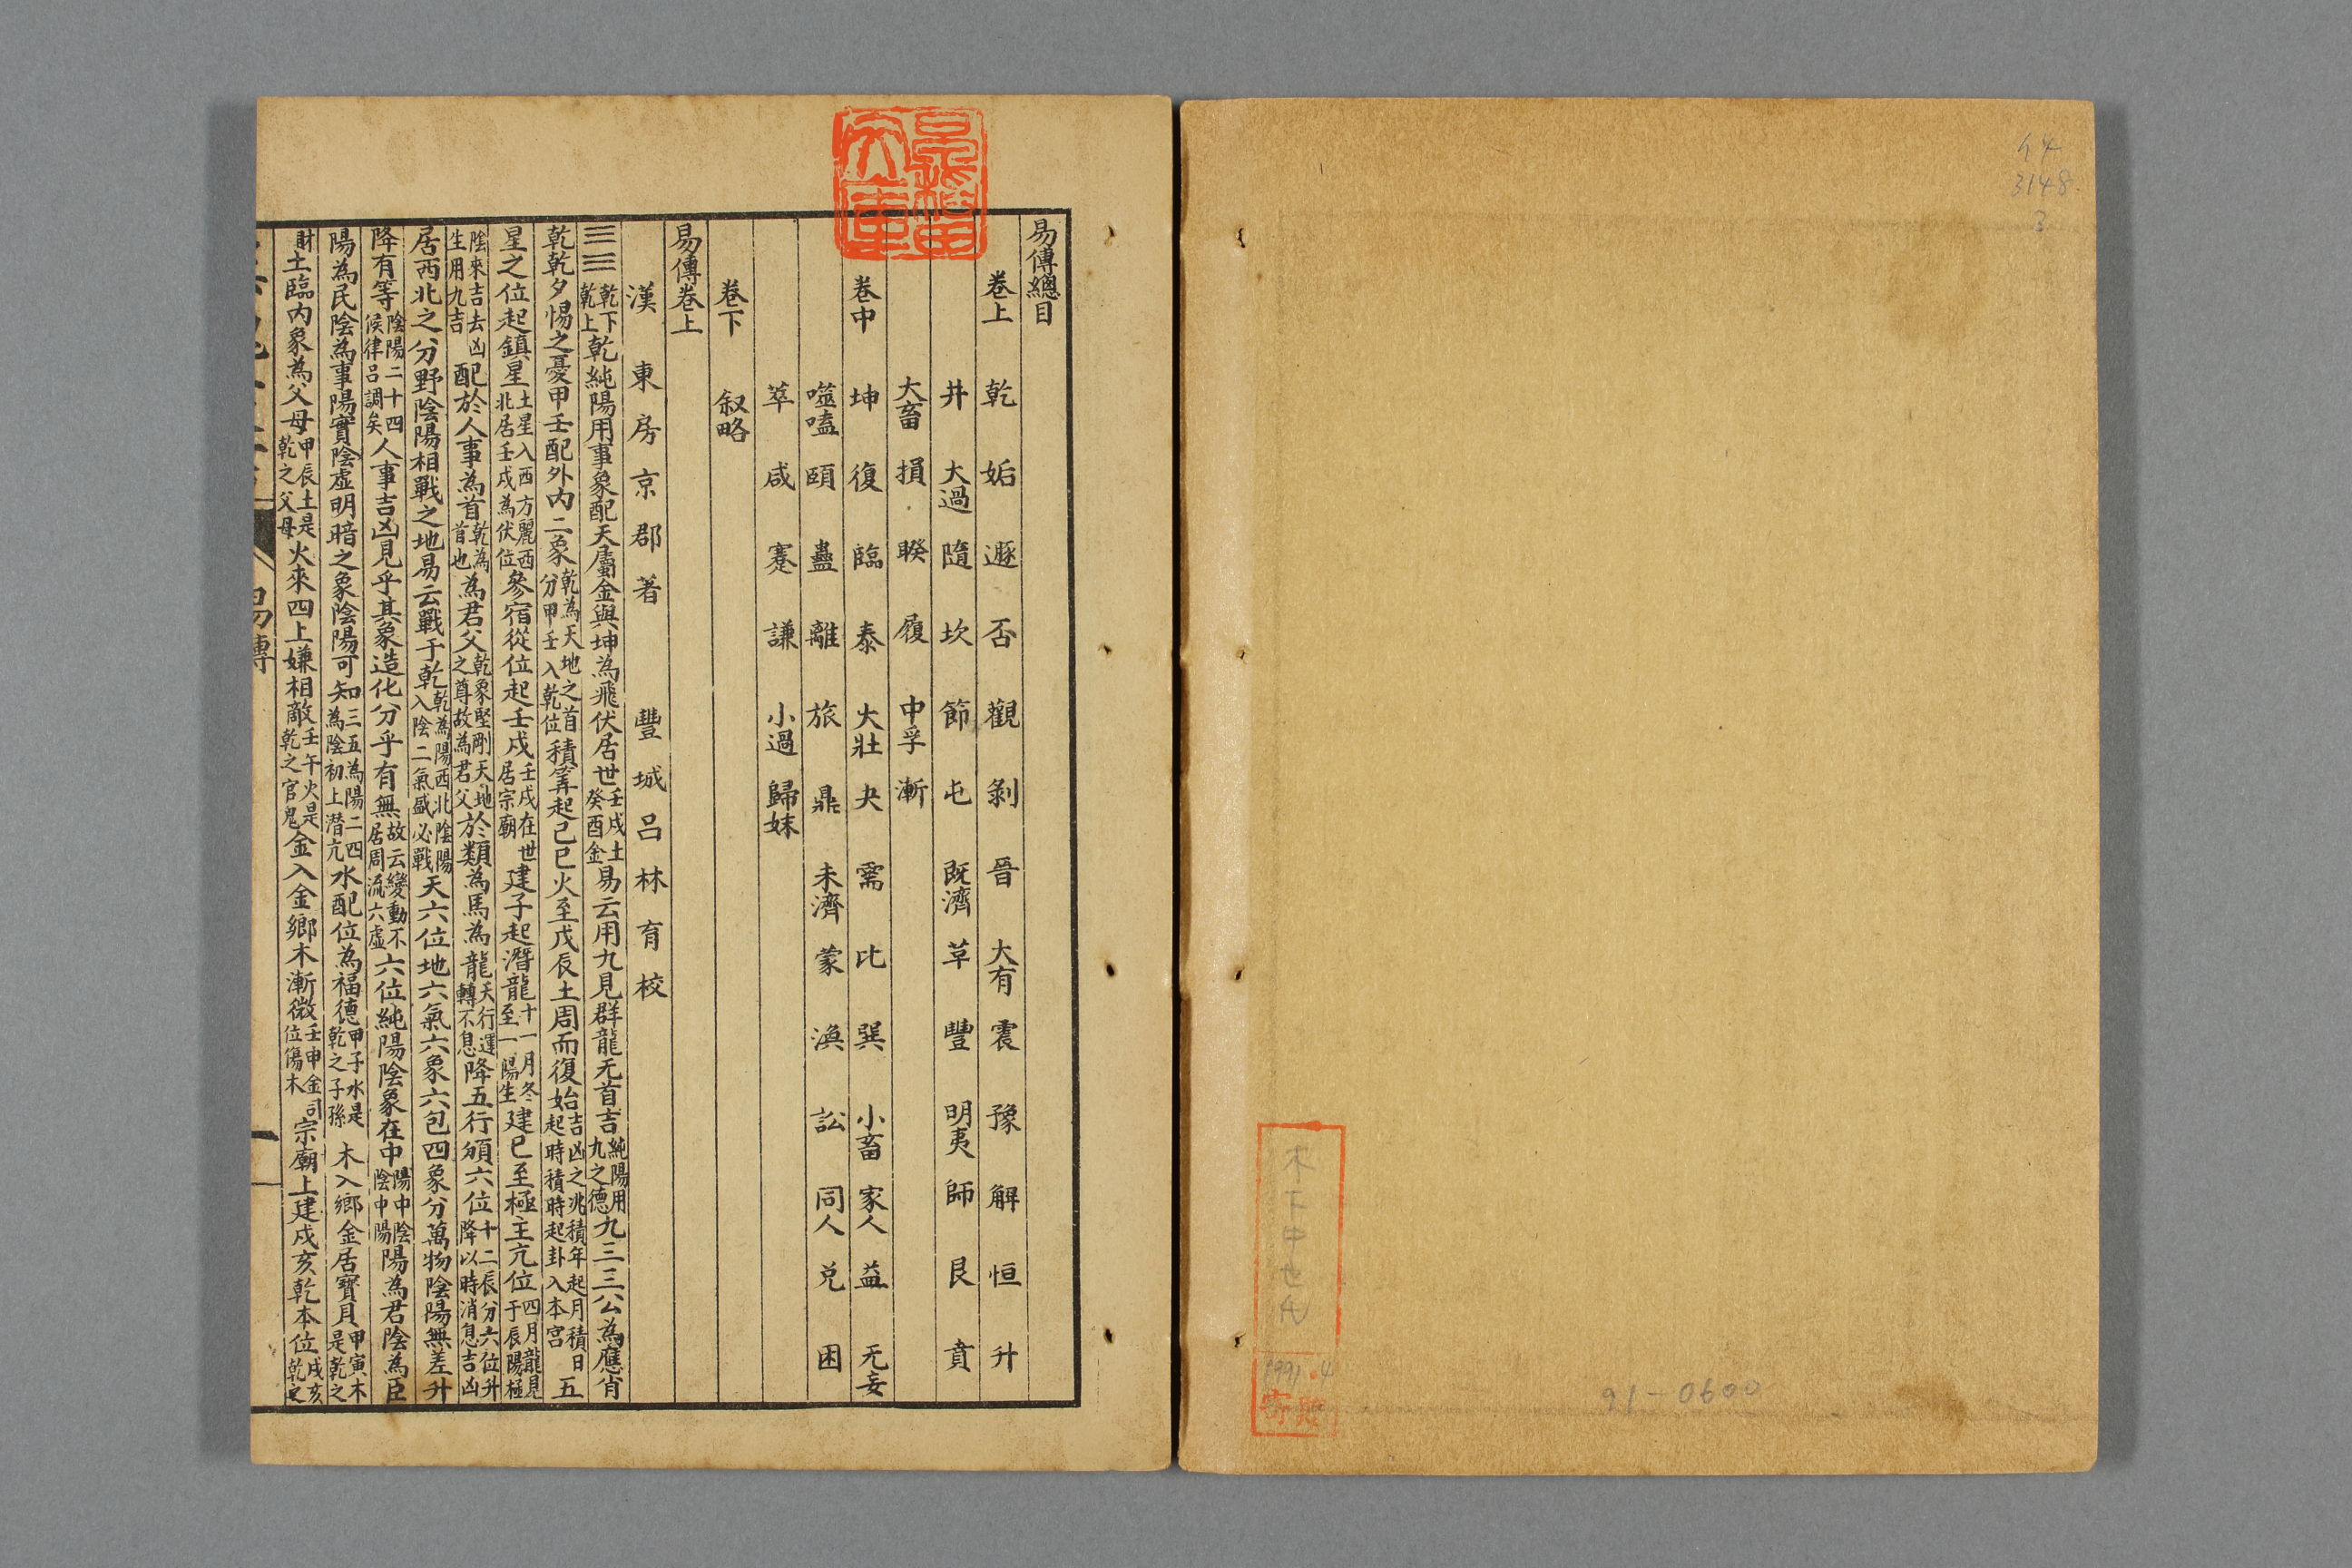 44
3148.
3
91-0600
1991.4
寄贈
易傳總目
卷上 乾 姤 遯 否 觀 剝 晉 大有 震 豫 解 恒 升
井 大過 隨 坎 節 屯 既濟 革 豐 明夷 師 艮 賁
大畜 損 睽 履 中孚 漸
卷中 坤 復 臨 泰 大壯 夬 需 比 巽 小畜 家人 益 无妄
噬嗑 頤 蠱 離 旅 鼎 未濟 蒙 渙 訟 同人 兌 困
萃 咸 蹇 謙 小過 歸妹
卷下 叙略
易傳卷上
漢 東房京郡著 豐城呂林育校
☰☰乾下乾上乾純陽用事象配天屬金與坤為飛伏居世壬戌土癸酉金易云用九見群龍无首吉純陽用九之德九三三公為應肖
乾乾夕惕之憂甲壬配外內二象乾為天地之首分甲壬入乾位積筭起己巳火至戊辰土周而復始吉凶之兆積年起月積日起時積時起卦入本宮五
星之位起鎮星土星入西方麗西北居壬戌為伏位參宿從位起壬戌壬戌在世居宗廟建子起潛龍十一月冬至一陽生建巳至極主亢位四月龍見于辰陽極
陰來吉去凶生用九吉配於人事為首乾為首也為君父乾象堅剛天地之尊故為君父於類為馬為龍天行運轉不息降五行頒六位十二辰分六位升降以時消息吉凶
居西北之分野陰陽相戰之地易云戰于乾乾為陽西北陰陽入陰二氣盛必戰天六位地六氣六象六包四象分萬物陰陽無差升
降有等陰陽二十四候律呂調矣人事吉凶見乎其象造化分乎有無故云變動不居周流六虛六位純陽陰象在中陽中陰陰中陽陽為君陰為臣
陽為民陰為事陽實陰虛明暗之象陰陽可知三五為陽二四為陰初上潛亢水配位為福德甲子水是乾之子孫木入鄉金居寶貝甲寅木是乾之
財土臨內象為父母甲辰土是乾之父母火來四上嫌相敵壬午火是乾之官鬼金入金鄉木漸微壬申金同位傷木宗廟上建戌亥乾本位戌亥乾之
易傳
一